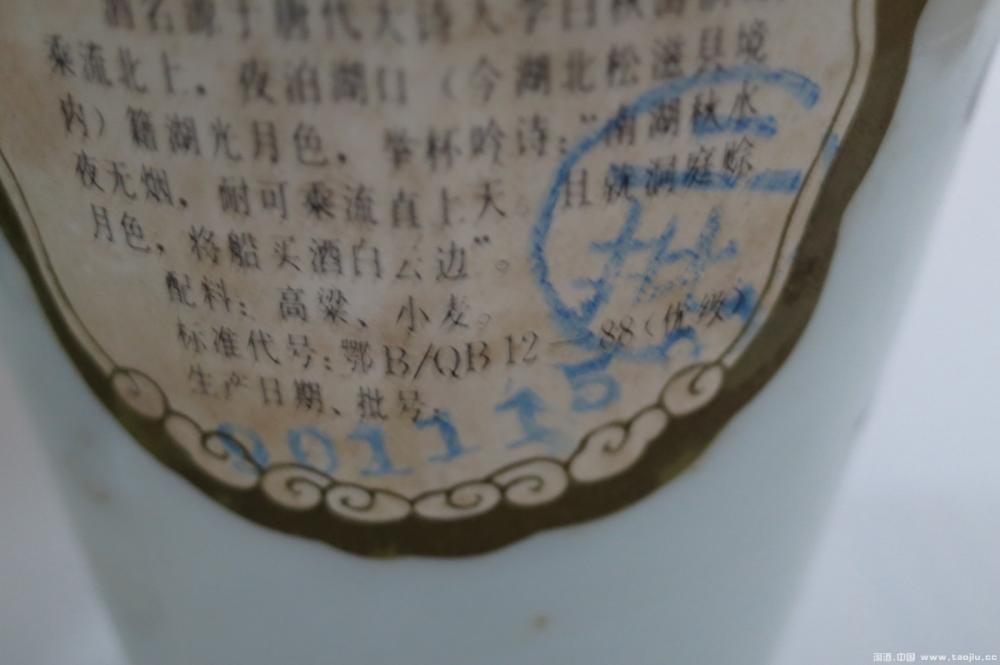 酒名源于唐代大诗人李白秋游
乘流北上，夜泊湖口（今湖北松滋县境
内）籍湖光月色，举杯吟诗："南湖秋水
夜无烟，耐可乘流直上天。且就洞庭赊
月色，将船买酒白云边"。
配料：高粱、小麦。
标准代号：鄂B/QB 12—88（优级）
生产日期、批号：
901115
淘酒.中国 www.taojiu.cc